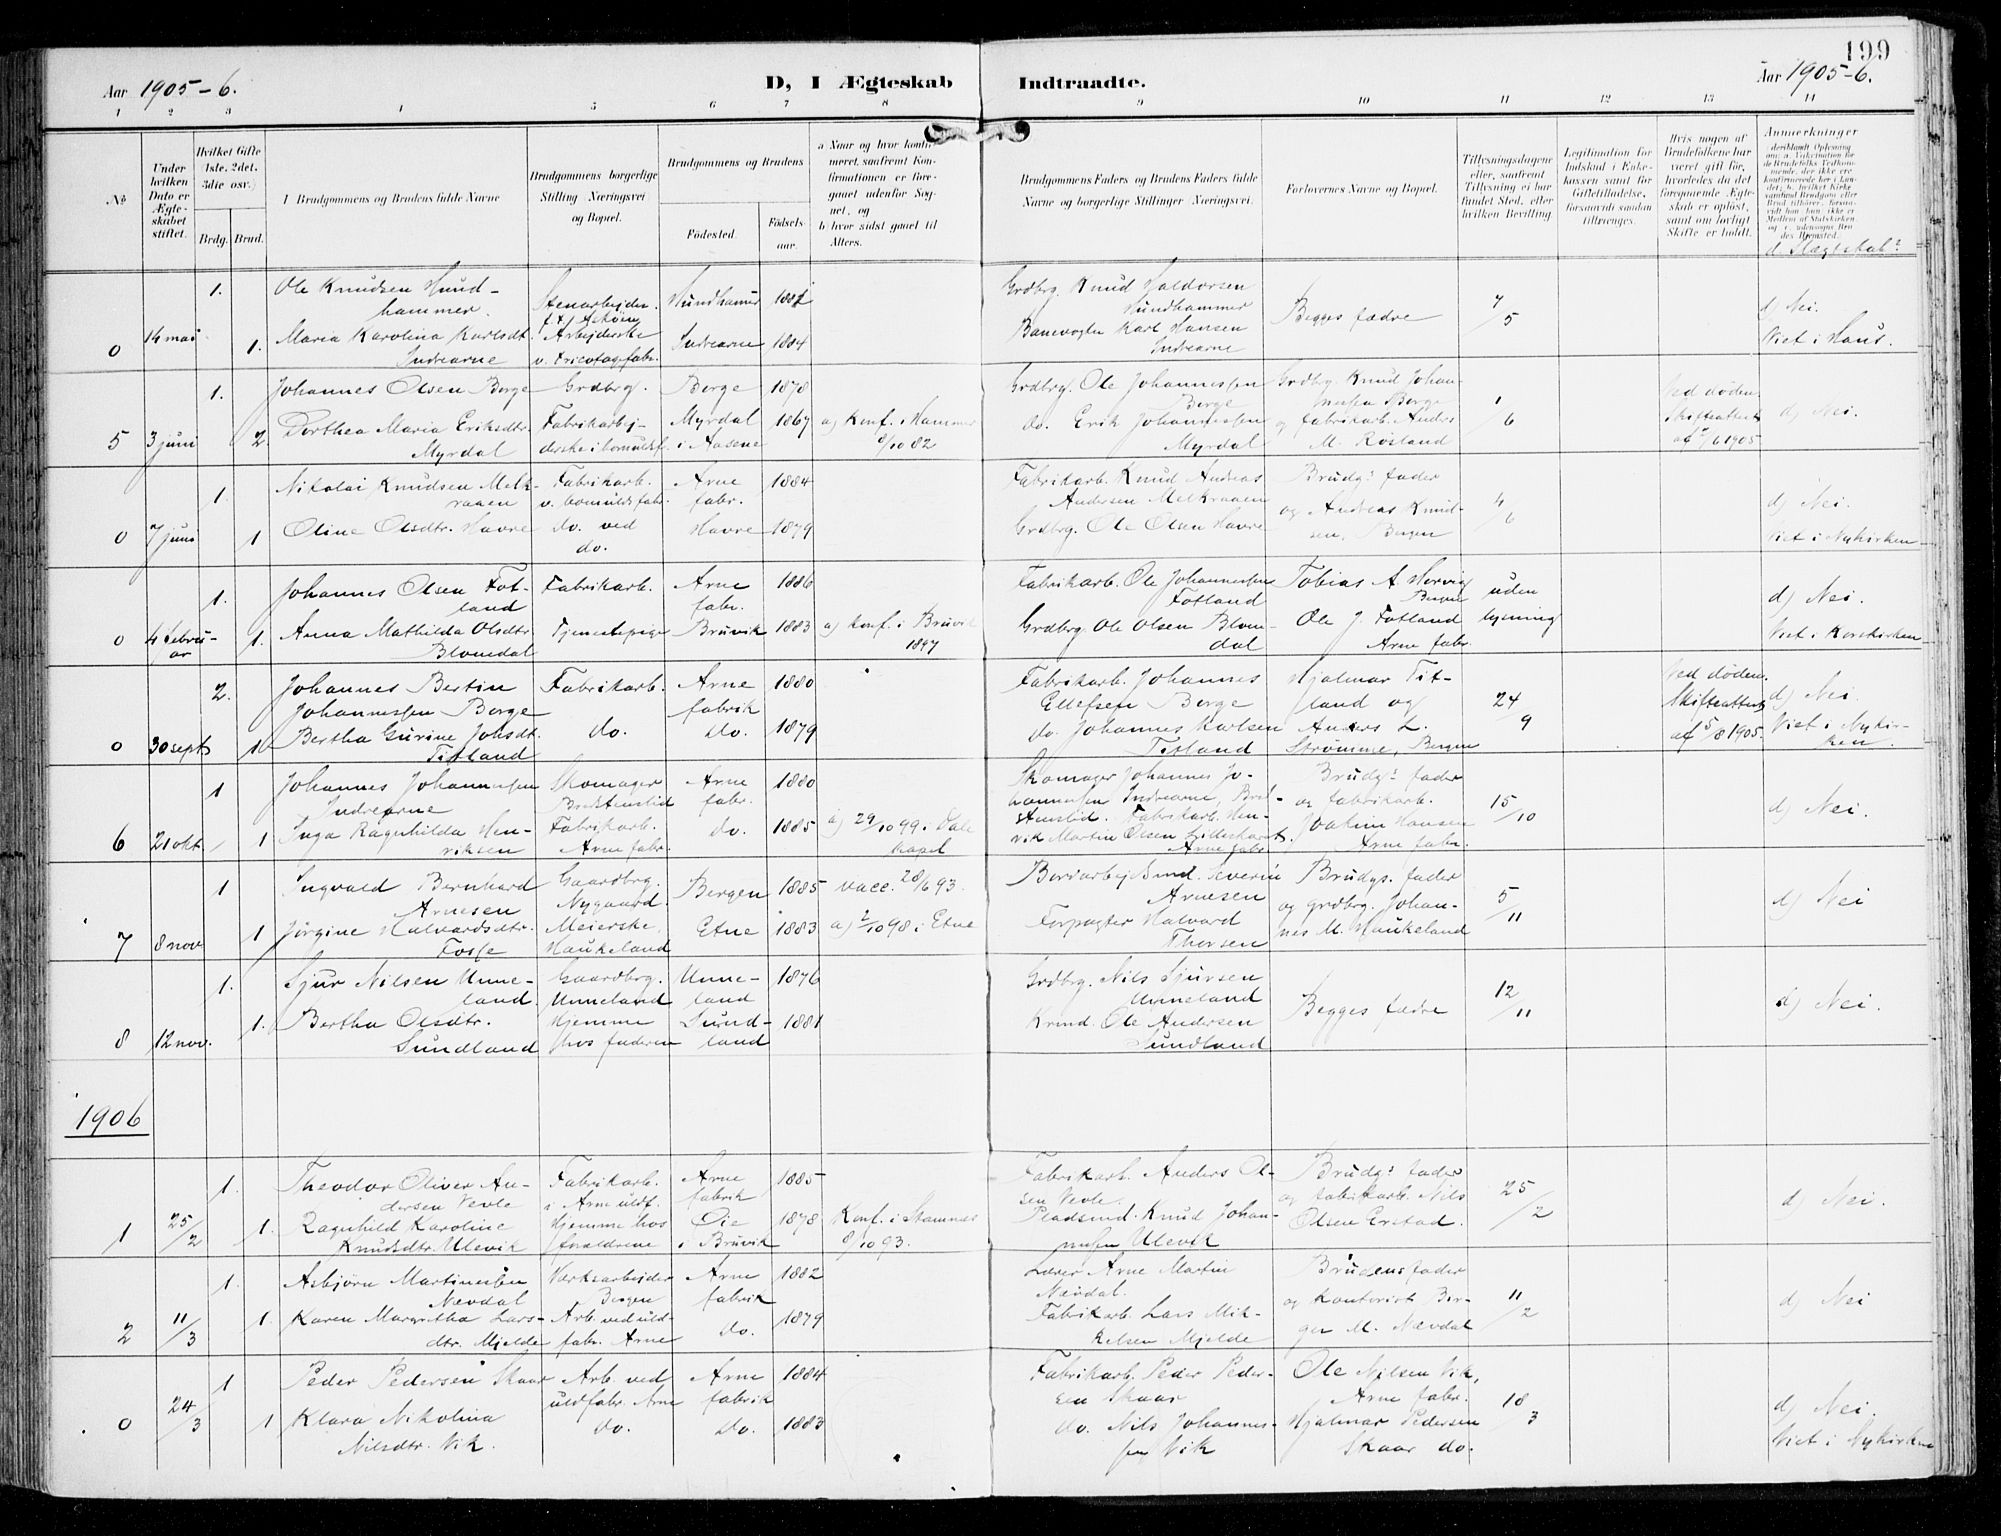 199
Aar 1905-6.
D, I Ægteskab Indtraadte.
Aar 1905-6.
1 2 3 4 5 6 7 8 9 10 11 12 13 14
No
Under hvilken Dato er Ægteskabet stiftet.
Hvilket Gifte (1ste, 2det, 3die osv.)
Brdg. Brud.
I Brudgommens og Brudens fulde Navne
Brudgommens borgerlige Stilling Næringsvei og Bopæl.
Brudgommens og Brudens
Fødested.
Fødselsaar.
a Naar og hvor konfirmeret, saafremt Konfirmationen er foregaaet udenfor Sognet, og
b hvor sidst gaaet til Alters.
Brudgommens Faders og Brudens Faders fulde Navne og borgerlige Stilling Næringsvei.
Forlovernes Navne og Bopæl.
Tillysningsdagene eller, saafremt Tillysning ei har fundet Sted, efter hvilken Bevilling.
Legitimation for Indskud i Enkekassen samt for Giftetilladelse, forsaavidt saadan tiltrænges.
Hvis nogen af Brudefolkene har været gift før, hvorledes da det foregaaende Ægteskab er opløst, samt om lovligt Skifte er holdt.
Anmerkninger
d. Slægtskab?
0 14 mai 1. 1.
Ole Knudsen Hundhammer.
Maria Karolina Karlsdt. Indrearne
Stenarbejder
Arbejderske v. tricotagefabr.
Hundhamer
Indrearne 1884
Grdbrg. Knud Haldorsen Hundhammer
Banevogter Karl Hansen Indrearne
Begges fædre
7/5
d) Nei.
Viet i Haus.
5 3 juni 1. 2.
Johannes Olsen Borge
Dorthea Maria Eriksdtr. Myrdal
Grdbrg.
Fabrikarbejderske i bomuldsf.
Borge 1878
Myrdal i Aasene 1867
a) Konf. i Hammer 8/10 82
Grdbrg. Ole Johannessen Borge
do. Erik Johannessen Myrdal
Grdbrg. Knud Johannessen Borge
og fabrikarb. Anders M. Røsland
1/6
Ved døden. Skifteattest af 2/6 1905
d) Nei.
0 7 juni 1. 1
Nikolai Knudsen Melkraaen
Oline Olsdtr. Havre
Fabrikarb. v. bomuldsfabr.
do. ved do.
Arne fabr. 1884
Havre 1879
Fabrikarb. Knud Andreas Andersen Melkraaen
Grdbrg. Ole Olsen Havre
Brudgs fader
og Andreas Knudsen, Bergen
4/6
d) Nei.
Viet i Nykirken
0 4 februar 1. 1.
Johannes Olsen Fotland
Anna Mathilda Olsdtr. Blomdal
Fabrikarb.
Tjenestepige
Arne fabr. 1886
Bruvik 1883
a) Konf. i Bruvik 1897
Fabrikarb. Ole Johannessen Fotland
Grdbrg. Ole Olsen Blomdal
Tobias A Hervig Bergen
Ole J. Fotland Arne fabr.
uden lysning
d) Nei.
Viet i Korskirken
0 30 sept 2. 1
Johannes Bertin Johannessen Borge
Bertha Gurine Johsdt. Titland
Fabrikarb.
do.
Arne fabrik 1880
do. 1879
Fabrikarb. Johannes Ellefsen Borge
do. Johannes Karlsen Titland
Hjalmar Titland og
Anders L. Strømme, Bergen
24/9
Ved døden. Skifteattest af 5/8 1905.
d) Nei.
Viet i Nykirken.
6 21 okt. 1 1
Johannes Johannessen Indrearne
Inga Ragnhilda Henriksen
Skomager
Fabrikarb. Arne fabr.
Arne fabr. 1880
do. 1885
a) 29/10 99 i Dale kapel
Skomager Johannes Johannessen Indrearne,
Fabrikarb. Henrik Martin Olsen Lilleskaret. Arne fabr
Brudgs fader
og fabrikarb. Joakim Hansen Arne fabr.
15/10
d) Nei.
7 8 nov 1 1
Ingvald Bernhard Arnesen
Jørgine Halvardsdtr. Fosse
Gaardbrg. Nygaard
Meierske, Haukeland
Bergen 1885
Etne 1883
vacc. 28/6 93.
a) 2/10 98 i Etne
Severin Arnesen
Forpagter Halvard Thorsen
Brudgs. fader
og grdbrg. Johannes M. Haukeland
5/11
d) Nei
8 12 nov. 1. 1.
Sjur Nilsen Unneland.
Bertha Olsdtr. Sundland
Gaardbrg. Unneland
Hjemme hos faderen
Unneland 1876
Sundland 1881
Grdbrg. Nils Sjursen Unneland
Ole Andersen Sundland
Begges fædre
12/11
d) Nei.
1906
1 25/2 1. 1.
Theodor Oliver Andersen Vevle
Ragnhild Karoline Knudsdtr. Ulevik
Fabrikarb. i Arne uldf.
Hjemme hos forældrene
Arne fabrik 1885
Øie i Bruvik 1878
Konf. i Stamnæs 8/10 93.
Fabrikarb. Anders Olsen Vevle.
Pladsmd. Knud Johannessen Ulevik
Brudgs fader
og fabrikarb. Nils Olsen Erstad.
25/2
d) Nei.
2 11/3 1. 1.
Asbjørn Martinessen Nævdal
Karen Margretha Larsdtr. Mjelde
Værksarbejder Bergen
Arb. ved uldfabr. Arne
Arne fabrik 1882
do. 1879
Lærer Arne Martin Nævdal.
Fabrikarb. Lars Mikkelsen Mjelde
Brudens fader
og kontorist Birger M. Nævdal
11/2
d) Nei
0 24/3 1 1
Peder Pedersen Skaar
Klara Nikolina Nilsdtr. Vik.
Arb. ved uldfabr. Arne
do.
Arne fabrik 1884
do. 1883
Fabrikarb. Peder Pedersen Skaar
do. Nils Johannessen Vik
Ole Nilsen Vik, Arne fabr.
Hjalmar Pedersen Skaar do.
18/3
d) Nei.
Viet i Nykirken